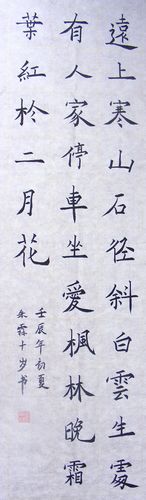 遠上寒山石径斜白雲生處
有人家停車坐愛楓林晚霜
葉紅於二月花
壬辰年初夏
朱霖十岁书